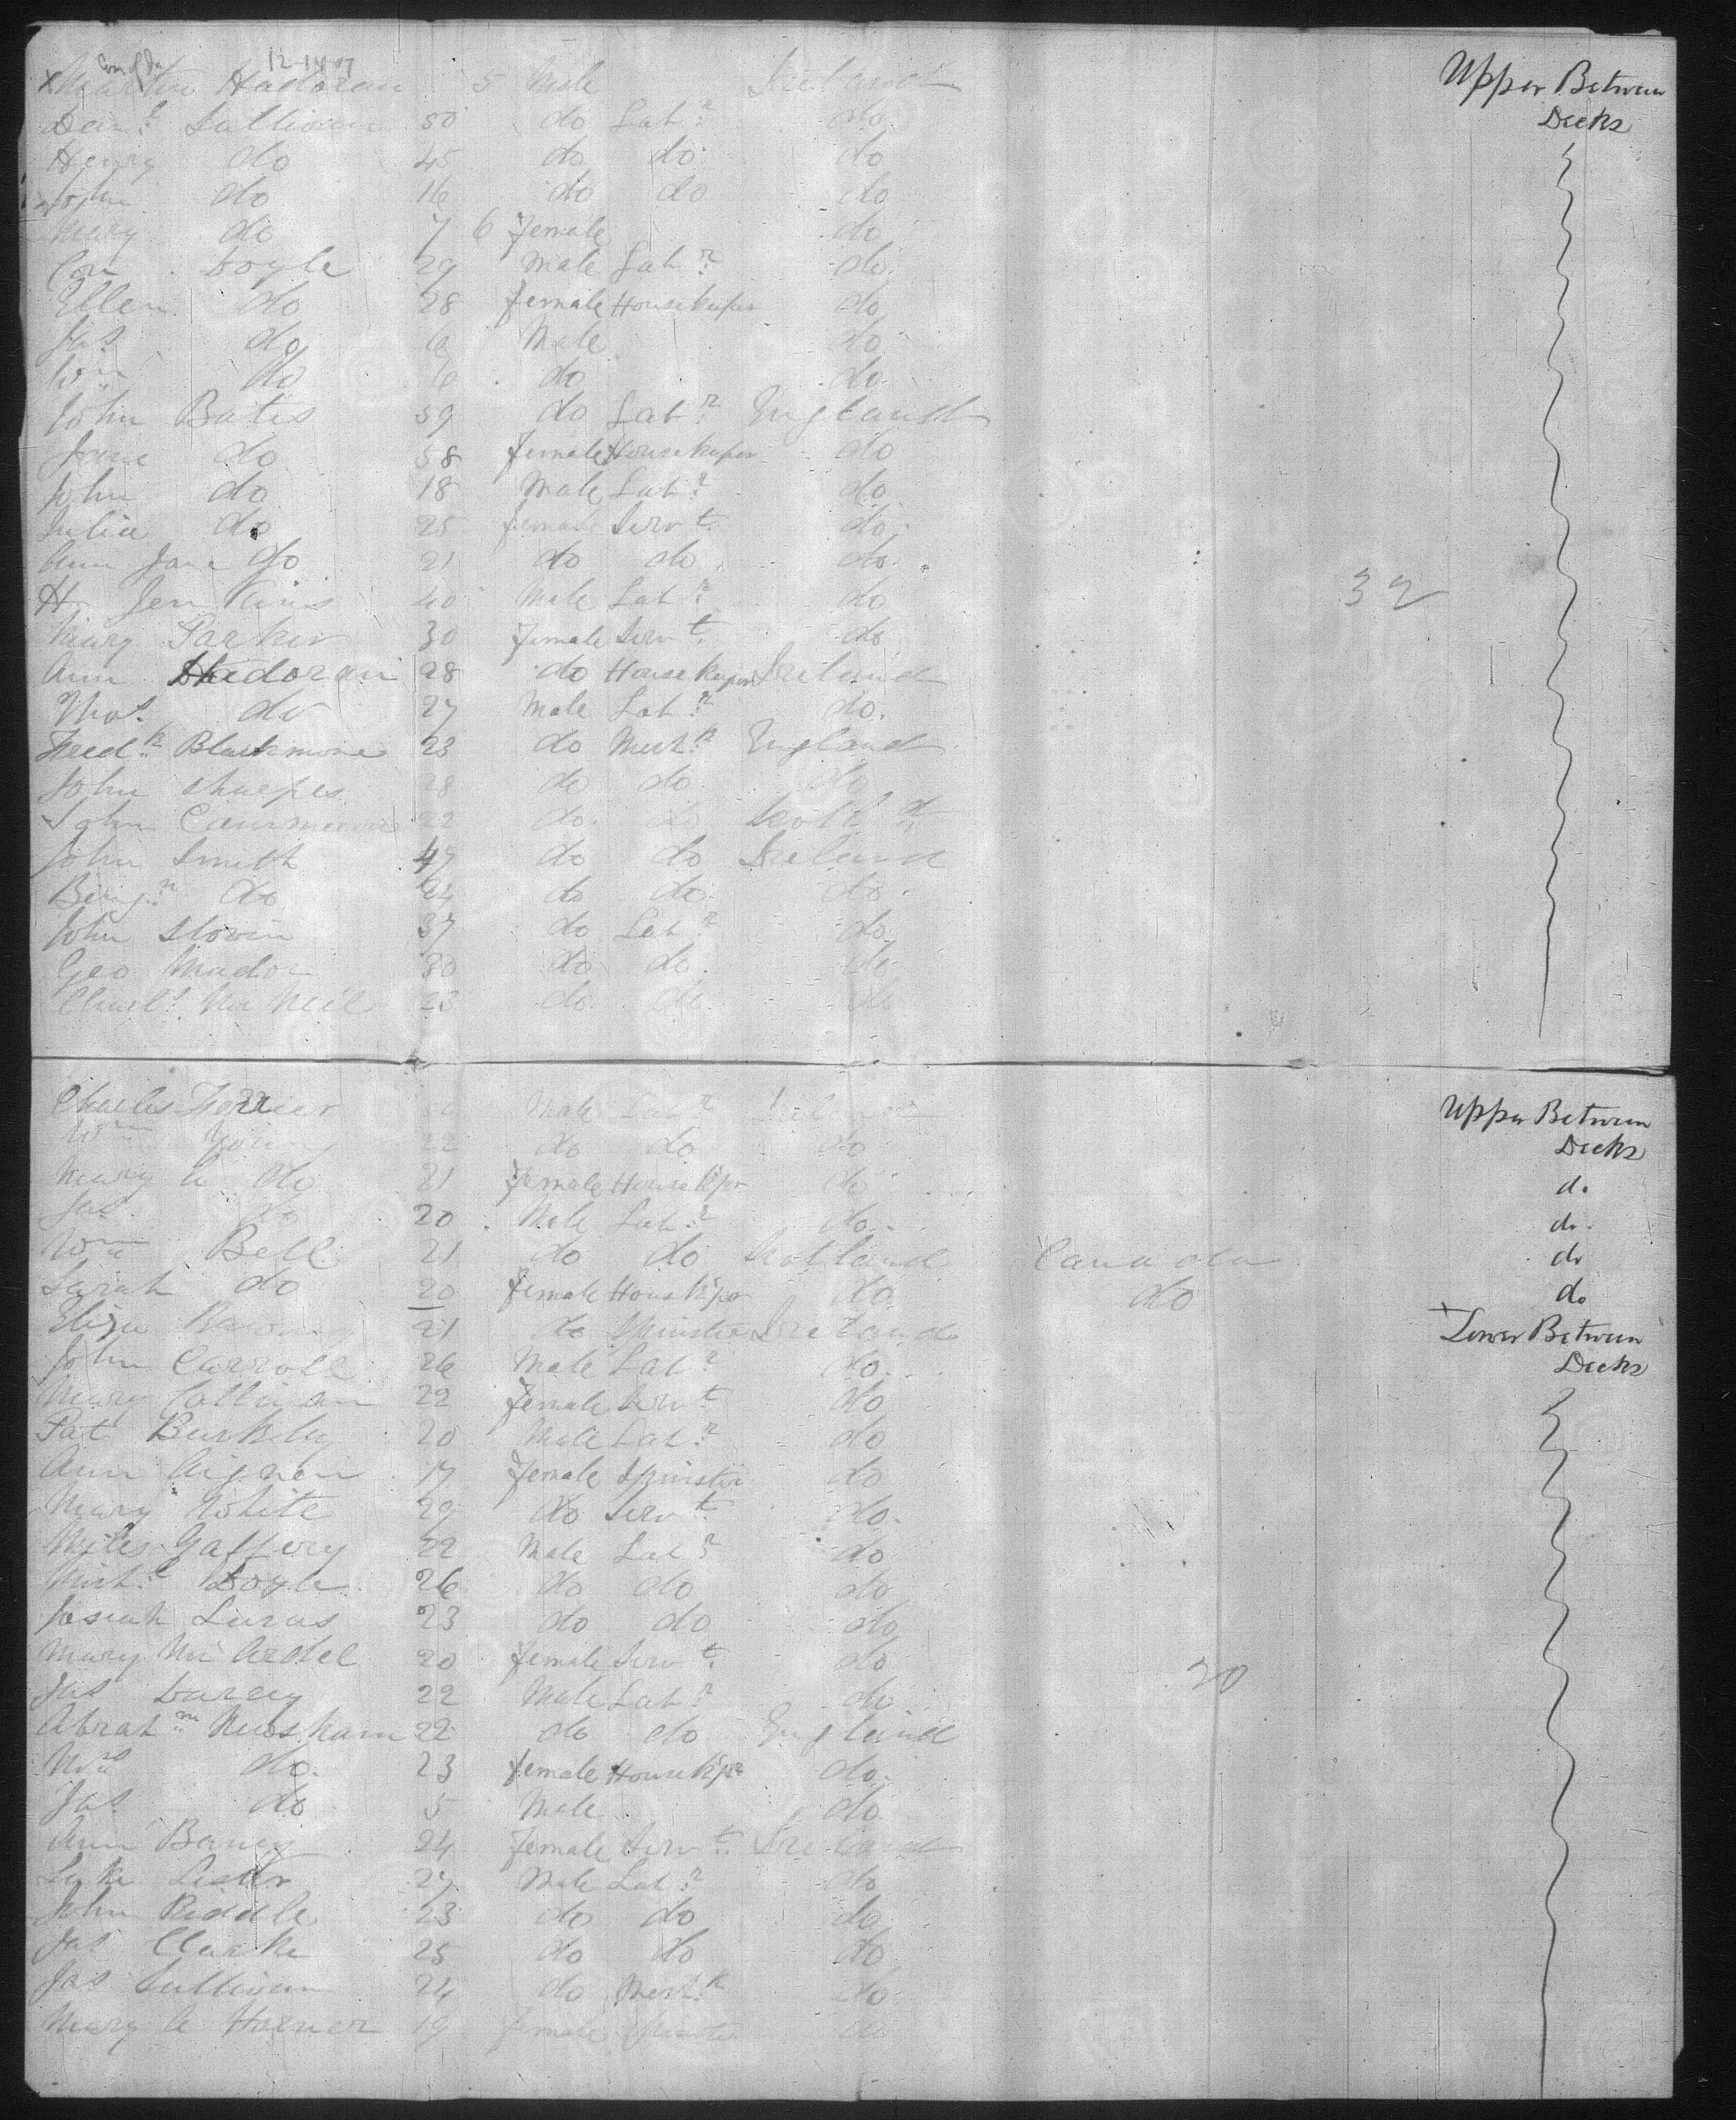 12-14-07
x Martin Hadoran 5 Male Ireland Upper Between Decks
Danl. Sullivan 50 do Labr. do
Henry do 45 do do do
John do 16 do do do
Mary do 7 6 female do
Con Doyle 29 Male Labr. do
Ellen do 28 female Housekeeper do
Jas do 6 Male do
Wm do 6 do do
John Bates 59 do Labr. England
Jane do 58 female Housekeeper do
John do 18 Male Labr. do
Julia do 25 female Servt. do
Ann Jane do 21 do do do
H Jenkins 40 Male Labr. do 32
Mary Parker 30 female Servt. do
Ann Hadoran 28 do Housekeeper Ireland
Thos. do 27 Male Labr. do
Fredk. Blackmore 23 do Mechk. England
John Sharples 28 do do do
John 22 do do Scotld.
John Smith 47 do do Ireland
Benjn. do 44 do do do
John Slovin 37 do Labr. do
Geo Mador 30 do do do
Charls. Mc Neil 23 do do do
Charles Ferrier Male Labr. Ireland Upper Between Decks
Wm 22 do do do
Mary A do 21 female Housekpr do do
Jas do 20 Male Labr. do do
Wm Bell 21 do do Scotland Canada do
Sarah do 20 female Housekpr do do do
Eliza 21 do Spinster Ireland + Lower Between Decks
John Carroll 26 Male Labr. do
Mary Colligan 22 female Servt do
Pat Burkley 20 Male Labr. do
Ann Aignen 17 female Spinster do
Mary White 29 do Servt. do
Miles Gaffery 22 Male Labr. do
Michl. Doyle 26 do do do
Josiah Lucas 23 do do do
Mary Mc Ardel 20 female Servt. do 20
Jas Darcey 22 Male Labr. do
Abrahm. Newsham 22 do do England
Mrs do 23 female Housekpr do
Jas do 5 Male do
Ann Banes 24 female Servt. Ireland
Luke Lester 27 Male Labr. do
John Riddle 23 do do do
Jas Clarke 25 do do do
Jas Sullivan 24 do Mechk. do
Mary A Horner 19 female Spinster do